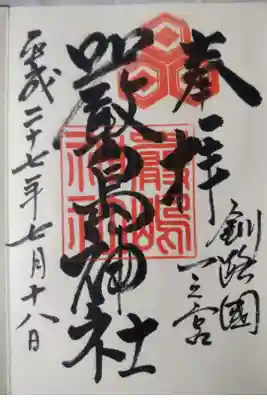 奉拝
釧路國
一之宮
嚴島神社
嚴嶋神社
平成二十七年七月十八日